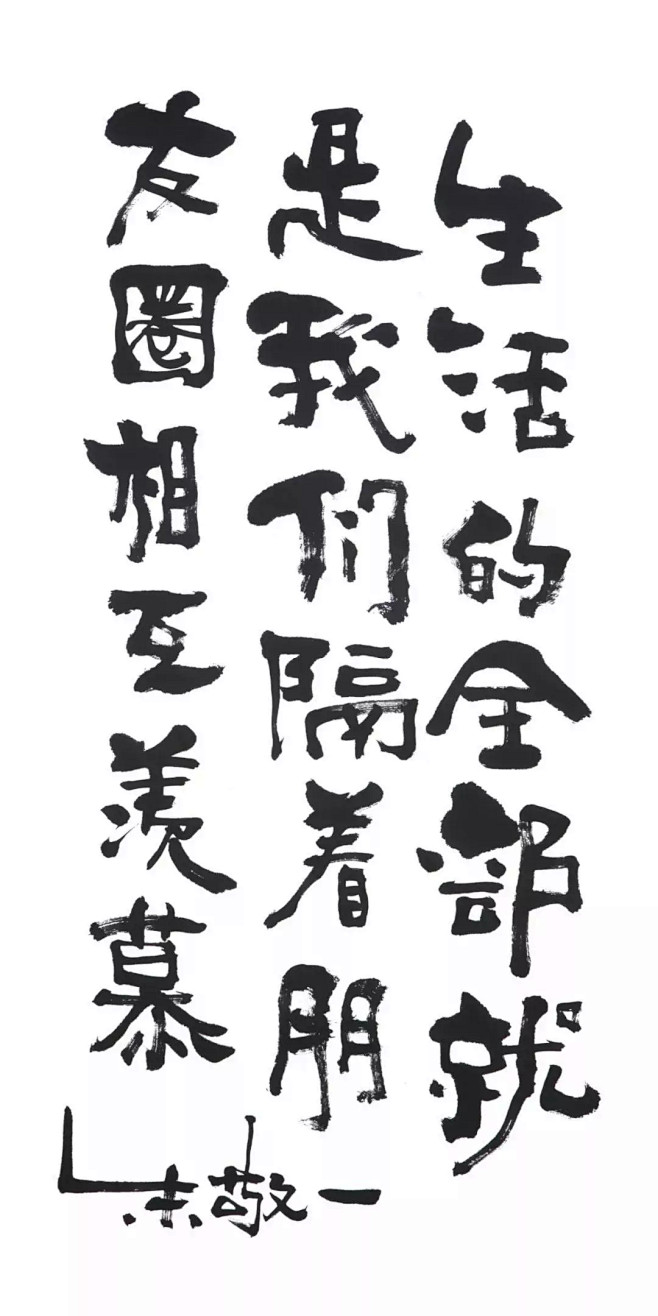 生活的全部就
是我们隔着朋
友圈相互羡慕
朱敬一